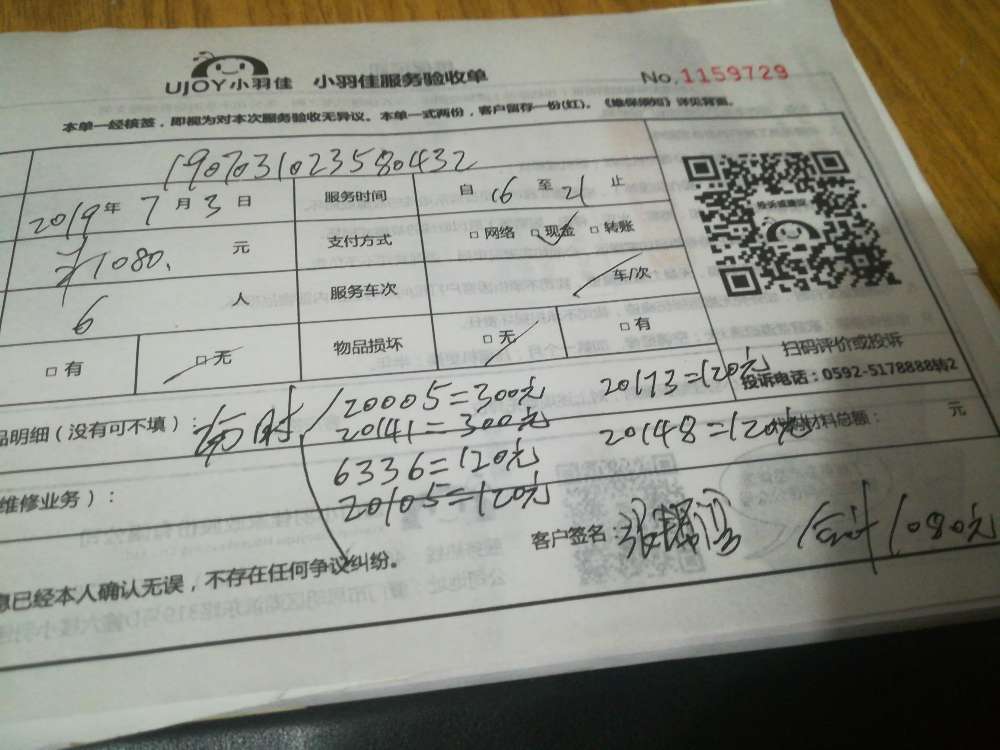 UJOY小羽佳 小羽佳服务验收单 No.1159729
本单一经核签，即视为对本次服务验收无异议。本单一式两份，客户留存一份(红)。《维保须知》详见背面。
1907031023580432
2019年7月3日 服务时间 自16至21止
1080. 元 支付方式 □网络 □现金 □转账
6 人 服务车次 车/次
□有 □无 物品损坏 □无 □有
投诉或建议
扫码评价或投诉
投诉电话：0592-5178888转2
品明细（没有可不填）： 材料总额： 元
20005=300元 20173=120元
20141=300元 20148=120元
6336=120元
20105=120元
维修业务）：
客户签名： 合计1080元
息已经本人确认无误，不存在任何争议纠纷。